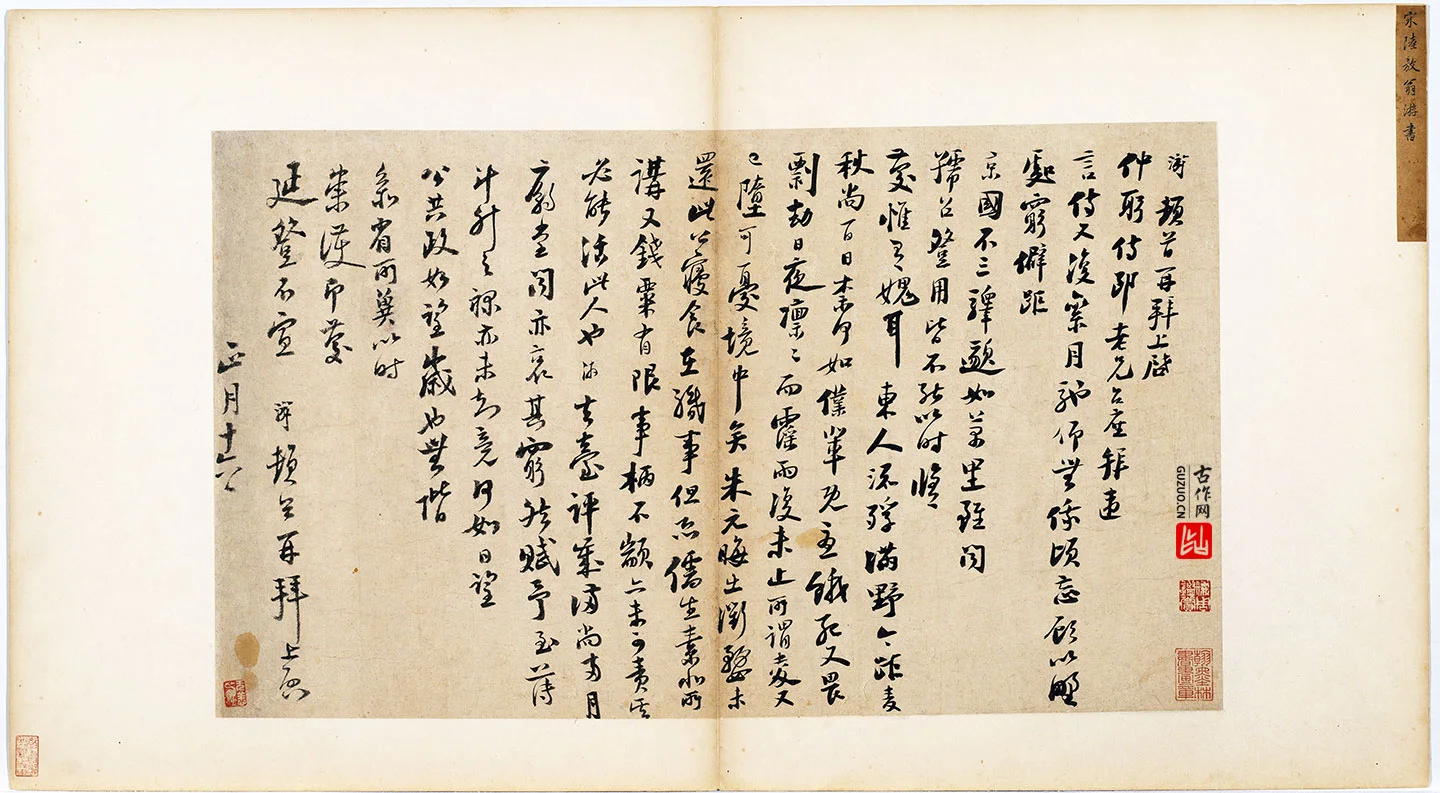 宋陸放翁游書
游 頓首再拜上啓
仲躬侍郎老兄台座拜違
言侍又復累月馳仰無俟頃忘顧以野
處窮僻距
京國不三驛邈如萬里雖聞
孺召登用皆不能以時脩
慶惟有愧耳東人流殍滿野今距麥
秋尚百日奈何如僕輩既憂餓死又畏
剽劫日夜凜凜而霪雨復未止所謂麥又
已墮可憂境中矣朱元晦出衢婺未
還此公寢食在職事但恐儒生素非所
講又錢粟有限事柄不顓亦未可責其
必能活此人也游去臺評歲滿尚兩月
廟堂聞亦哀其窮然賦予至薄
斗升之祿亦未知竟何如日望
公共政如望歲也無階
參省所冀以時
崇護即慶
延登不宣 游 頓首再拜上啓
正月十六
古作网
GUZUO.CN